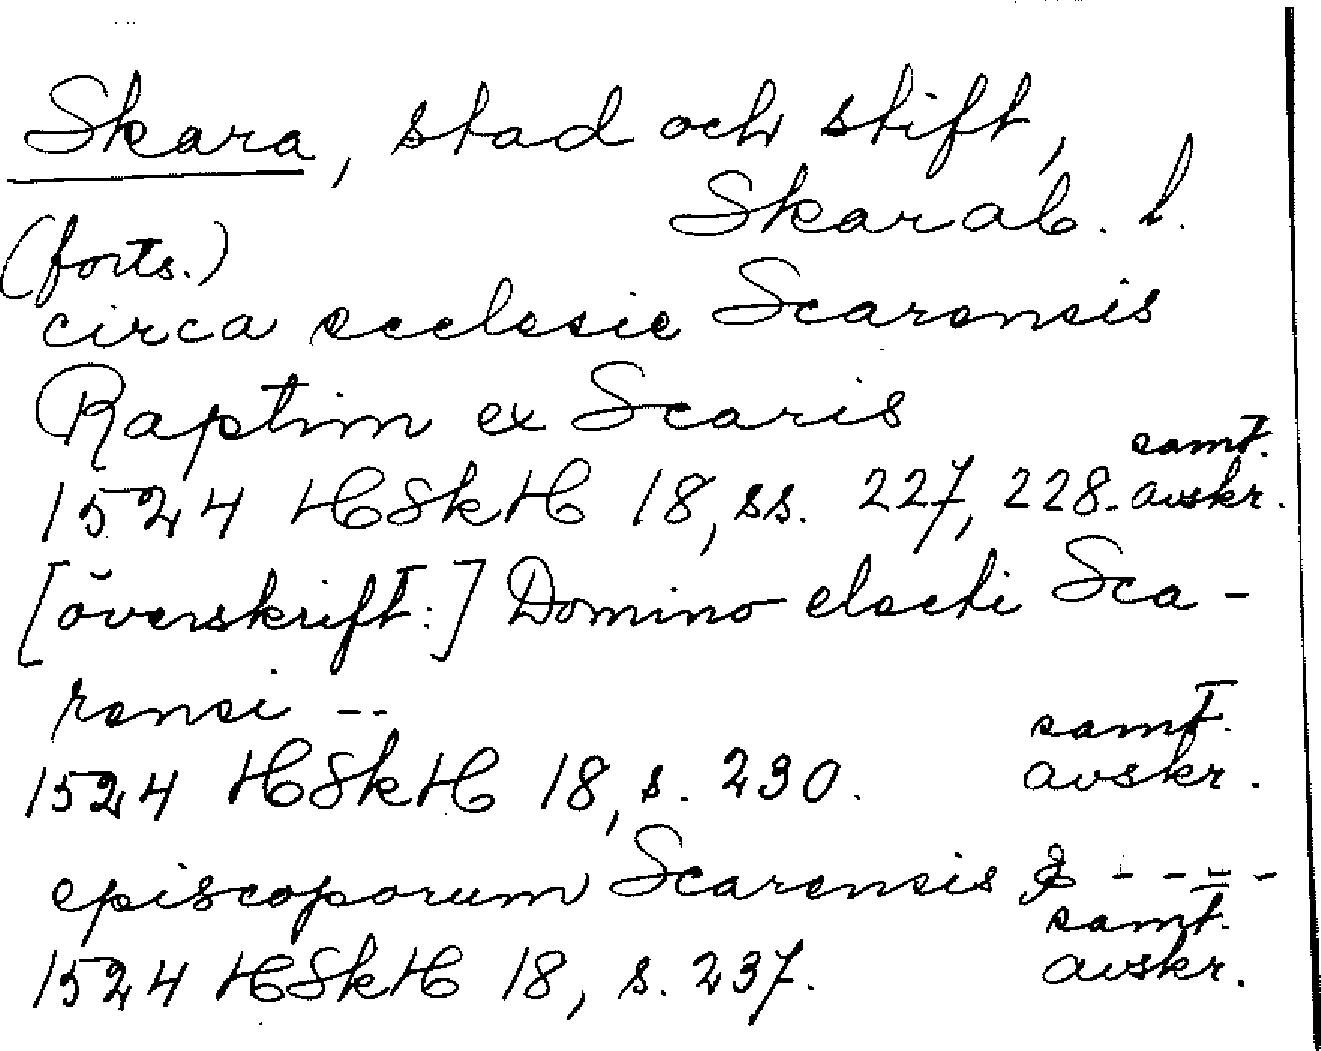 Skara, stad och stift,
Skarab. l.
(forts.)
circa ecclesie Scarensis
Raptim ex Scaris
samt.
1524 HSkH 18, ss. 227, 228. avskr.
[överskrift:] Domino electi Sca-
rensi --
samt.
1524 HSkH 18, s. 230. avskr.
episcoporum Scarensis ----
samt.
1524 HSkH 18, s. 237. avskr.